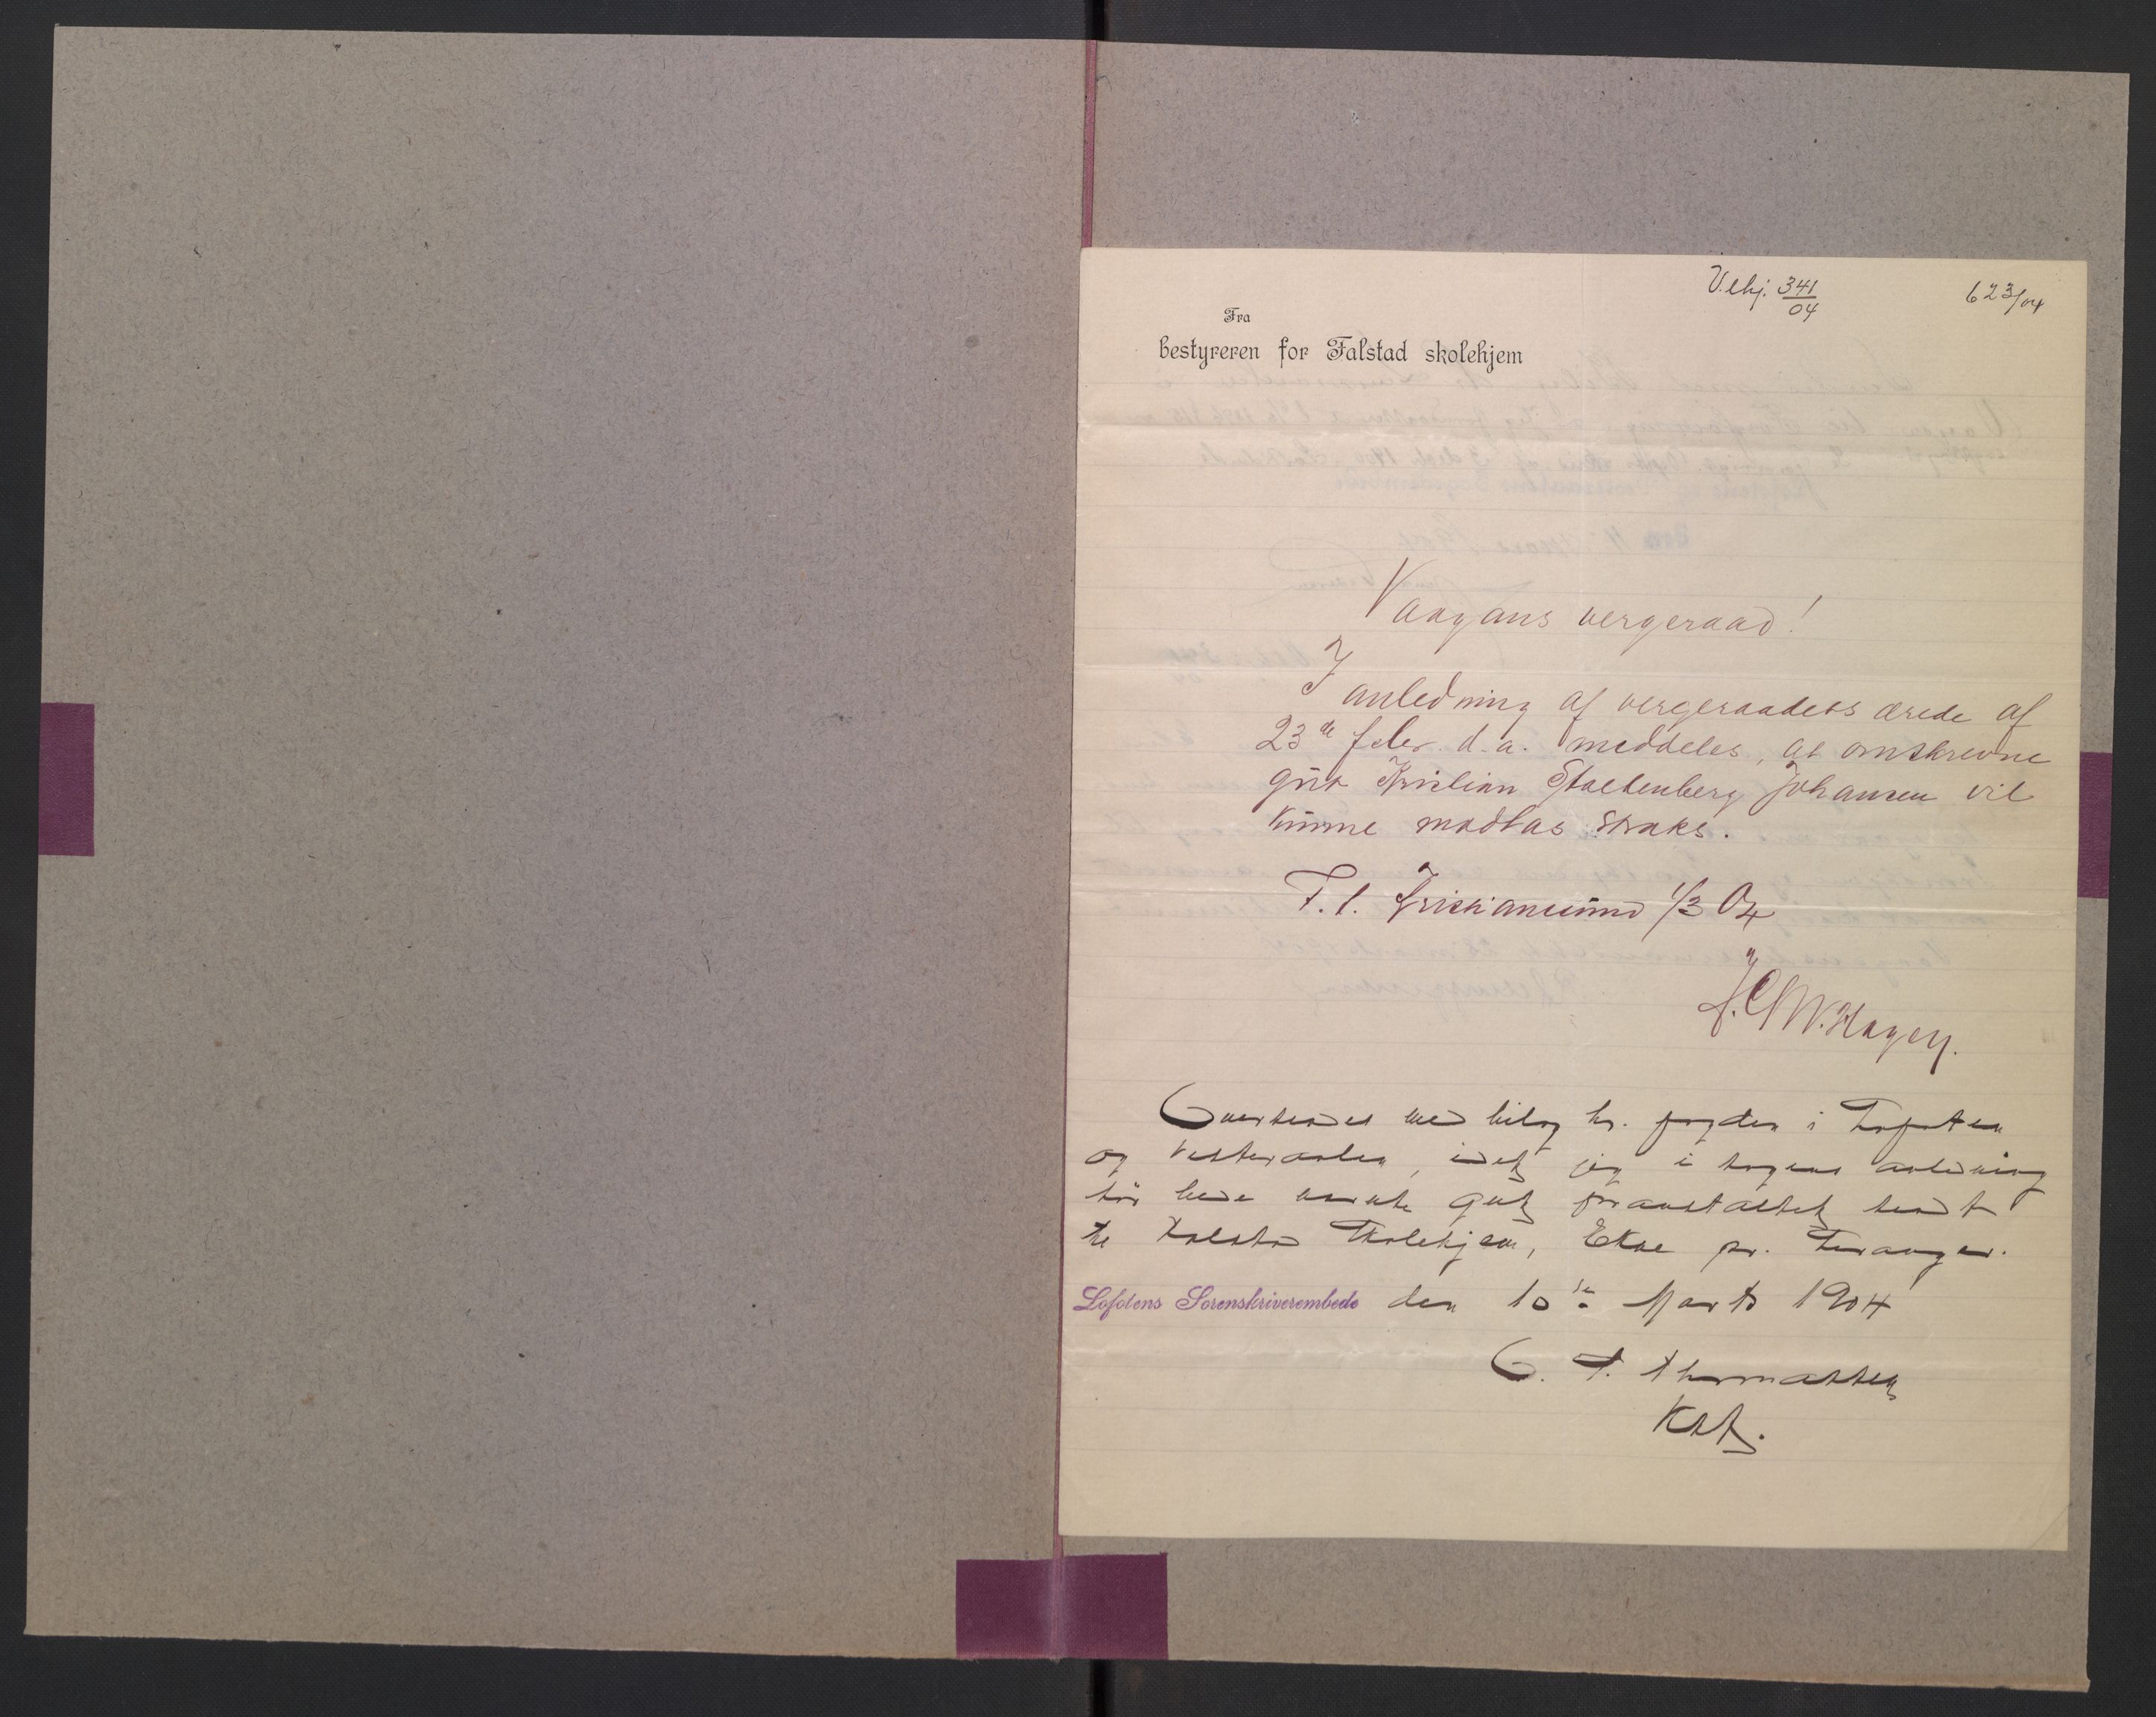 V.ekj. 341/04
623/04
Fra
bestyreren for Falstad skolehjem
Vaagans vergeraad!
I anledning af vergeraadets ærede af
23de febr. d.a. meddeles, at omskrevne
gut Kristian Stoltenberg Johansen vil
kunne modtas straks.
T. t. Kristiansund 1/3 04
J. C. M. Hagen.
Oversendes med bilag hr. fogden i Lofoten
og Vesteraalen, idet jeg i sagens anledning
tør bede nævnte gut foranstaltet sendt
til Falstad Skolehjem, Ekne pr. Levanger.
Lofotens Sorenskriverembede den 10de Marts 1904
O. T. Thomassen
Kst.